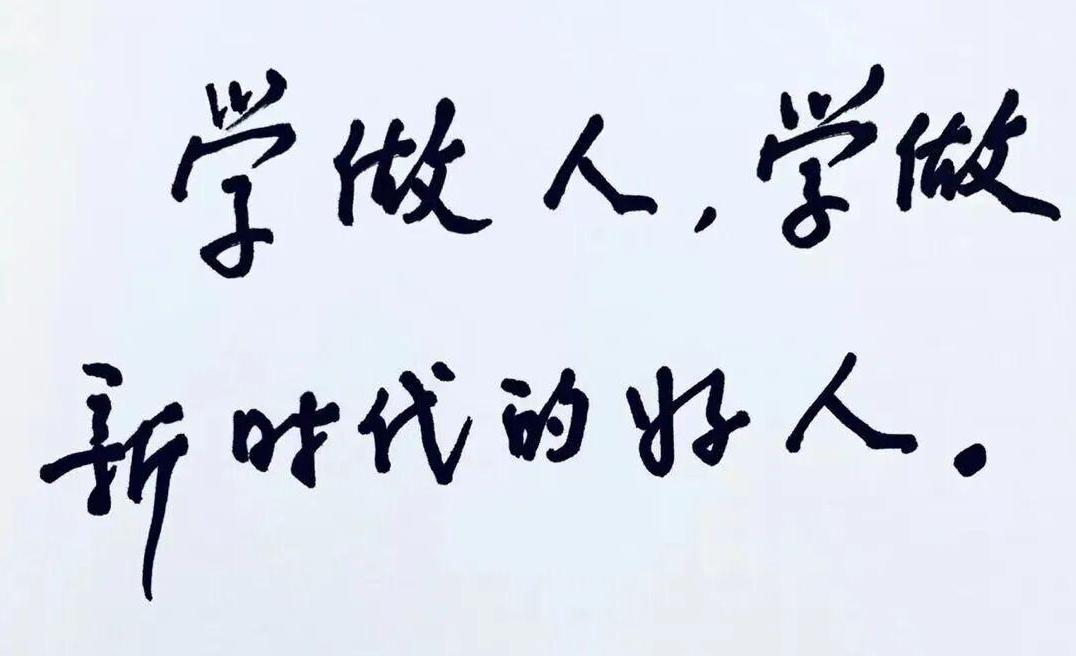 学做人，学做
新时代的好人.